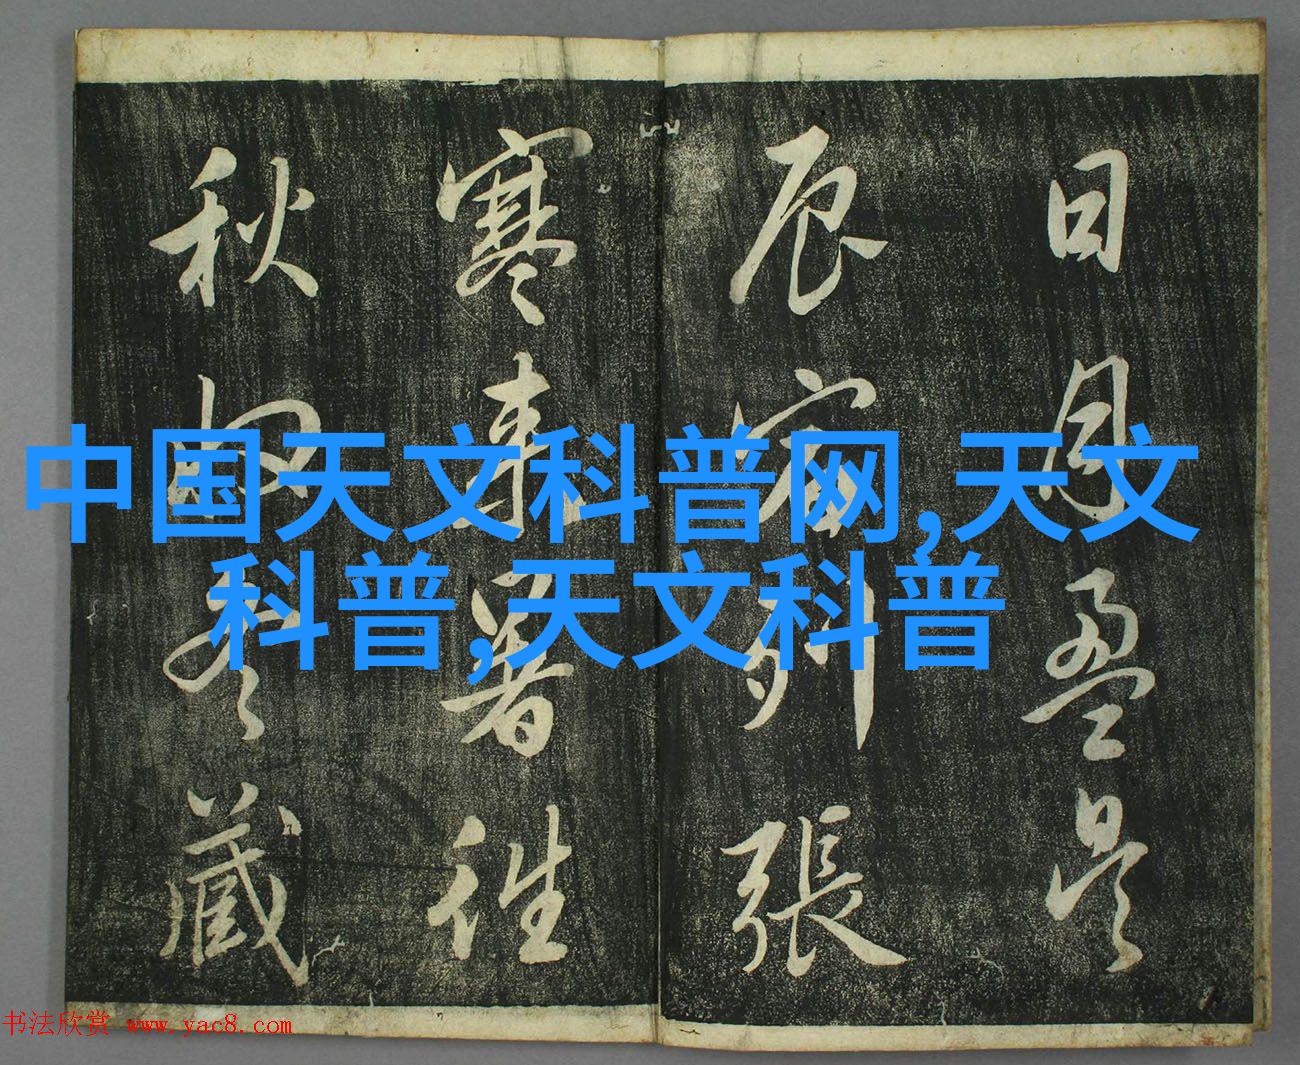 日月盈昃
辰宿列張
寒來暑往
秋收冬藏
中国天文科普网,天文
科普,天文科普
书法欣赏 www.yac8.com